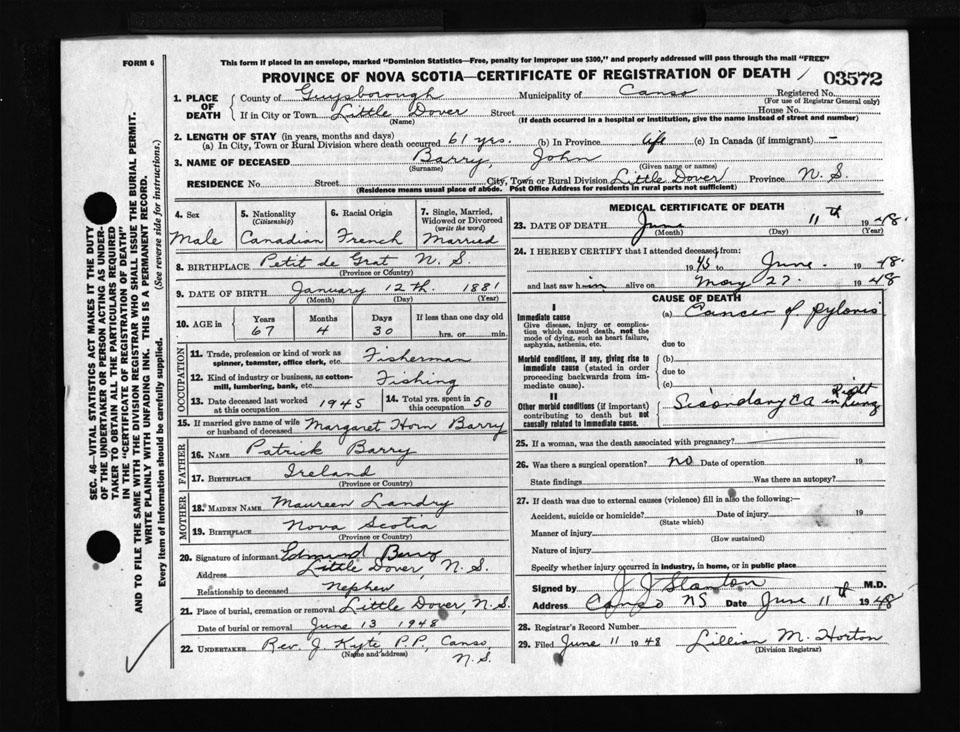 FORM 6
This form if placed in an envelope, marked "Dominion Statistics—Free, penalty for improper use $300," and properly addressed will pass through the mail "FREE"
PROVINCE OF NOVA SCOTIA—CERTIFICATE OF REGISTRATION OF DEATH
03572
1. PLACE OF DEATH
County of Guysborough Municipality of Canso Registered No.
(For use of Registrar General only)
If in City or Town Little Dover Street House No.
(Name) (If death occurred in a hospital or institution, give the name instead of street and number)
2. LENGTH OF STAY (in years, months and days)
(a) In City, Town or Rural Division where death occurred 61 yrs. (b) In Province life (c) In Canada (if immigrant) —
3. NAME OF DECEASED Barry, John
(Surname) (Given name or names)
RESIDENCE No. Street City, Town or Rural Division Little Dover Province N. S.
(Residence means usual place of abode. Post Office Address for residents in rural parts not sufficient)
4. Sex
Male
5. Nationality
(Citizenship)
Canadian
6. Racial Origin
French
7. Single, Married, Widowed or Divorced
(write the word)
Married
8. BIRTHPLACE Petit de Grat N. S.
(Province or Country)
9. DATE OF BIRTH January 12th. 1881
(Month) (Day) (Year)
10. AGE in Years Months Days If less than one day old
67 4 30 hrs. or min.
OCCUPATION
11. Trade, profession or kind of work as spinner, teamster, office clerk, etc. Fisherman
12. Kind of industry or business, as cotton-mill, lumbering, bank, etc. Fishing
13. Date deceased last worked at this occupation 1945
14. Total yrs. spent in this occupation 50
15. If married give name of wife or husband of deceased Margaret Horn Barry
FATHER
16. NAME Patrick Barry
17. BIRTHPLACE Ireland
(Province or Country)
MOTHER
18. MAIDEN NAME Maureen Landry
19. BIRTHPLACE Nova Scotia
(Province or Country)
20. Signature of informant Edmund Barry
Address Little Dover, N. S.
Relationship to deceased Nephew
21. Place of burial, cremation or removal Little Dover, N. S.
Date of burial or removal June 13, 1948
22. UNDERTAKER Rev. J. Kyte, P.P., Canso, N. S.
(Name and address)
MEDICAL CERTIFICATE OF DEATH
23. DATE OF DEATH June 11th 1948.
(Month) (Day) (Year)
24. I HEREBY CERTIFY that I attended deceased from:
1945, to June 1948.
and last saw him alive on May 27. 1948
CAUSE OF DEATH
I
Immediate cause
Give disease, injury or complication which caused death, not the mode of dying, such as heart failure, asphyxia, asthenia, etc.
(a) Cancer of pyloris
due to
Morbid conditions, if any, giving rise to immediate cause (stated in order proceeding backwards from immediate cause).
(b)
due to
(c)
II
Other morbid conditions (if important) contributing to death but not causally related to immediate cause.
Secondary CA in Right Lung
25. If a woman, was the death associated with pregnancy?
26. Was there a surgical operation? no Date of operation 19
State findings Was there an autopsy?
27. If death was due to external causes (violence) fill in also the following:—
Accident, suicide or homicide? Date of injury 19
(State which)
Manner of injury
(How sustained)
Nature of injury
Specify whether injury occurred in industry, in home, or in public place
Signed by J J Stanton M.D.
Address Canso NS Date June 11th 1948
28. Registrar's Record Number
29. Filed June 11 1948 Lillian M. Horton
(Division Registrar)
SEC. 46—VITAL STATISTICS ACT MAKES IT THE DUTY OF THE UNDERTAKER OR PERSON ACTING AS UNDERTAKER TO OBTAIN ALL THE PARTICULARS REQUIRED IN THE "CERTIFICATE OF REGISTRATION OF DEATH" AND TO FILE THE SAME WITH THE DIVISION REGISTRAR WHO SHALL ISSUE THE BURIAL PERMIT.
WRITE PLAINLY WITH UNFADING INK. THIS IS A PERMANENT RECORD.
Every item of information should be carefully supplied. (See reverse side for instructions.)